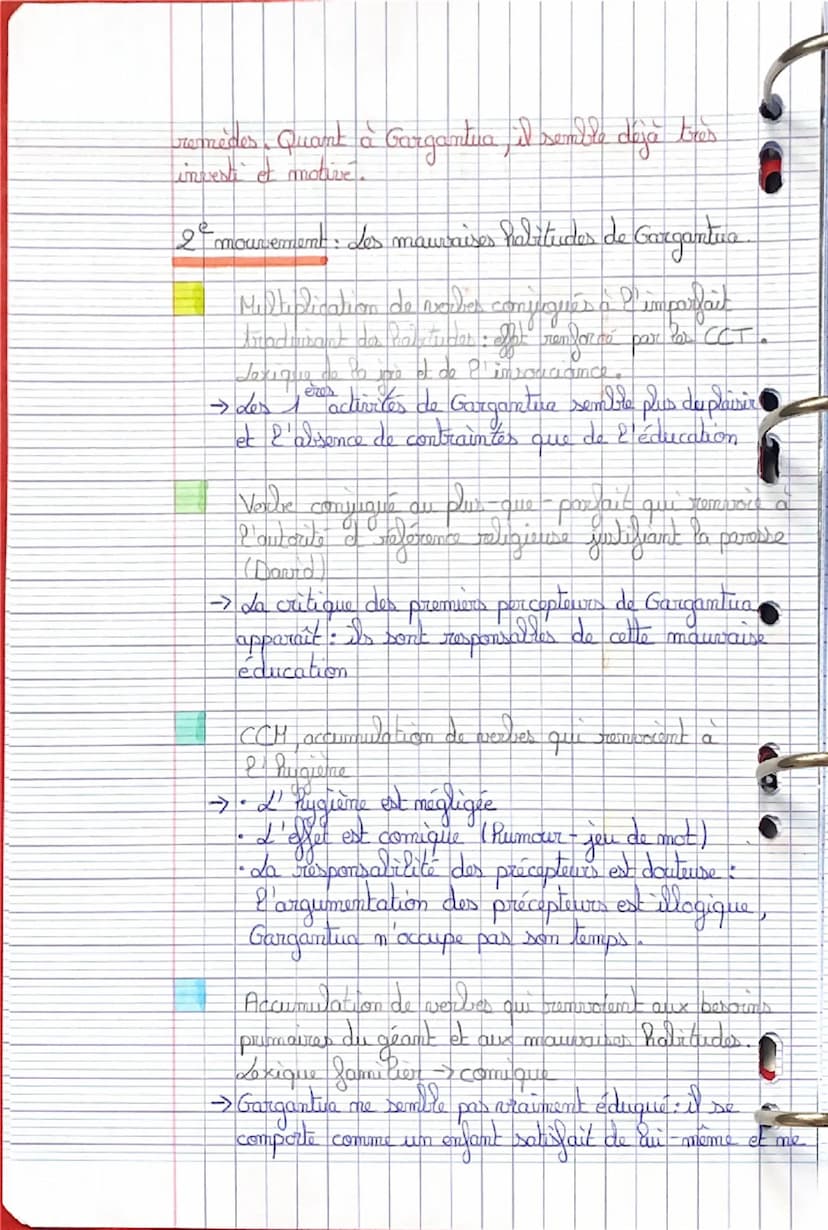 remèdes. Quant à Gargantua, il semble déjà très
investi et motivé.
2e mouvement : Les mauvaises habitudes de Gargantua.
Multiplication de verbes conjugués à l'imparfait
traduisant des habitudes : effet renforcé par les CCT.
Lexique de la joie et de l'insouciance.
→ Les 1ères activités de Gargantua semble plus du plaisir
et l'absence de contraintes que de l'éducation
Verbe conjugué au plus-que-parfait qui renvoie à
l'autorité et référence religieuse justifiant la paresse
(David)
→ La critique des premiers percepteurs de Gargantua
apparaît : ils sont responsables de cette mauvaise
éducation
CCM, accumulation de verbes qui renvoient à
l'hygiène
→ • L'hygiène est négligée
• L'effet est comique (Humour - jeu de mot)
• La responsabilité des précepteurs est douteuse :
l'argumentation des précepteurs est illogique,
Gargantua n'occupe pas son temps.
Accumulation de verbes qui renvoient aux besoins
primaires du géant et aux mauvaises habitudes.
Lexique familier → comique
→ Gargantua ne semble pas vraiment éduqué : il se
comporte comme un enfant satisfait de lui-même et ne